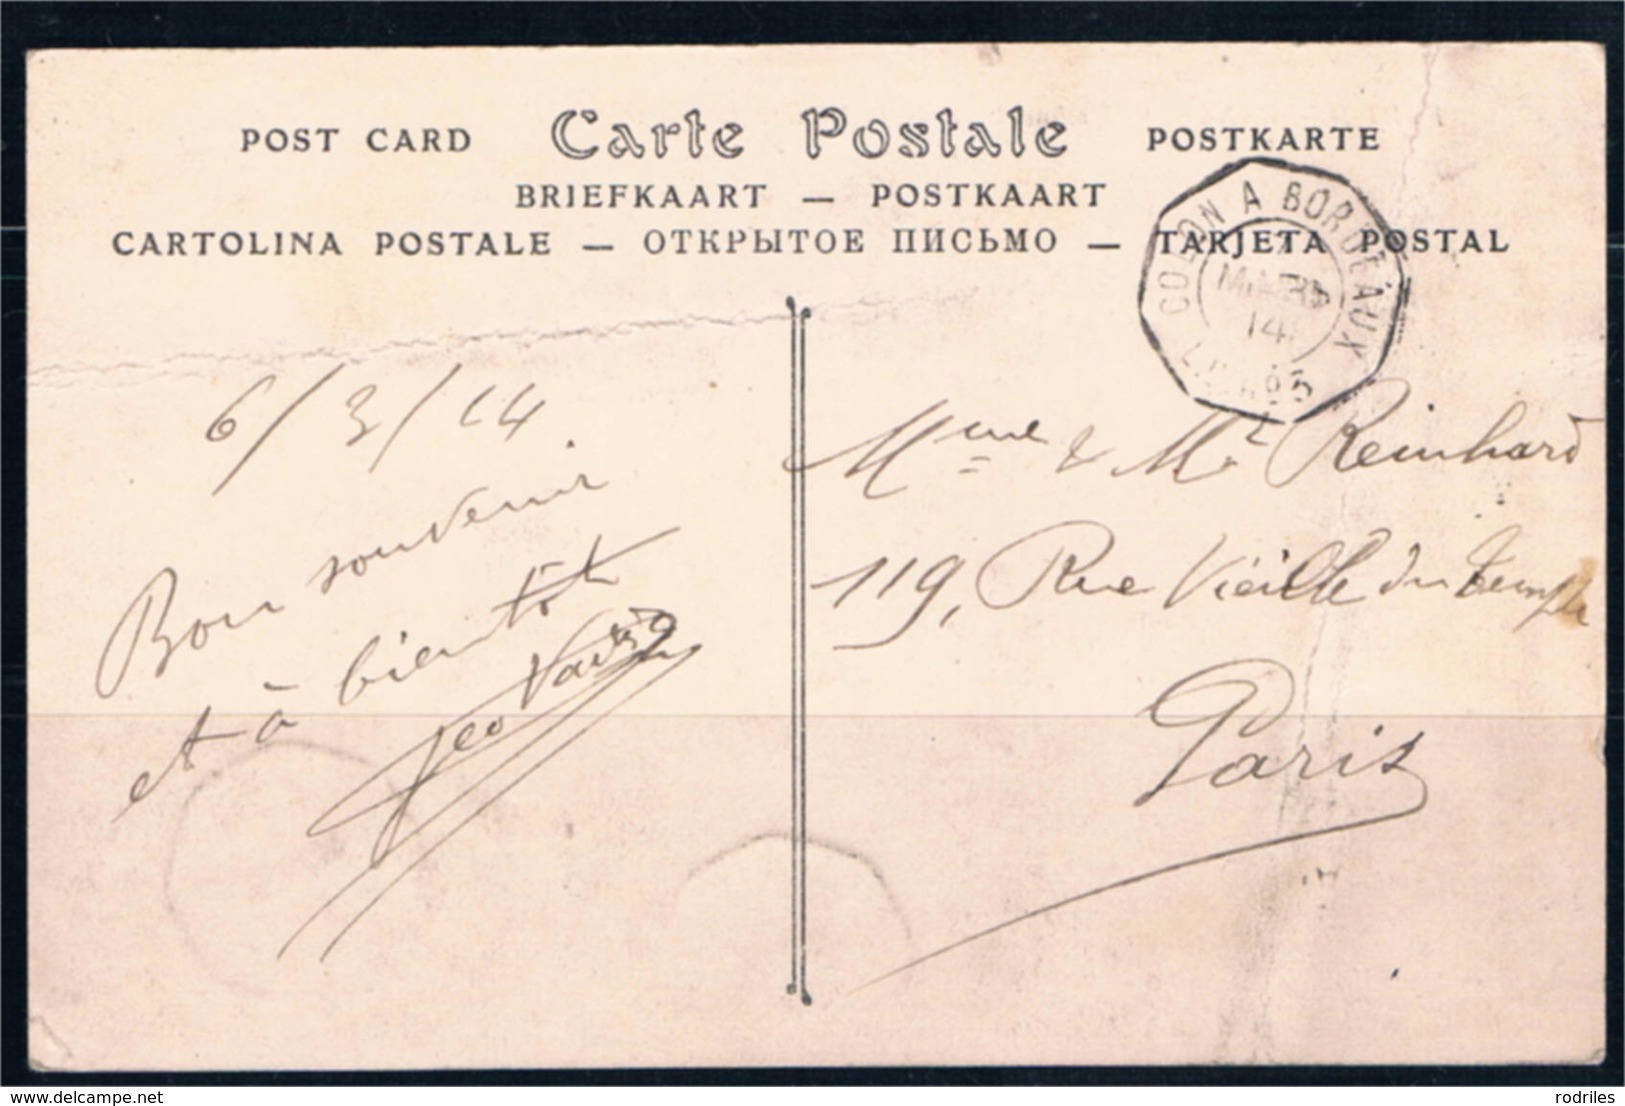 POST CARD Carte Postale POSTKARTE
BRIEFKAART — POSTKAART
CARTOLINA POSTALE — ОТКРЫТОЕ ПИСЬМО — TARJETA POSTAL
COLON A BORDEAUX
MARS
14
L.D. Nº 3
6/3/14
Bon souvenir
et à bientôt
Geo
Mme & Mr Reinhard
119, Rue Vieille du Temple
Paris
delcampe.net
rodriles